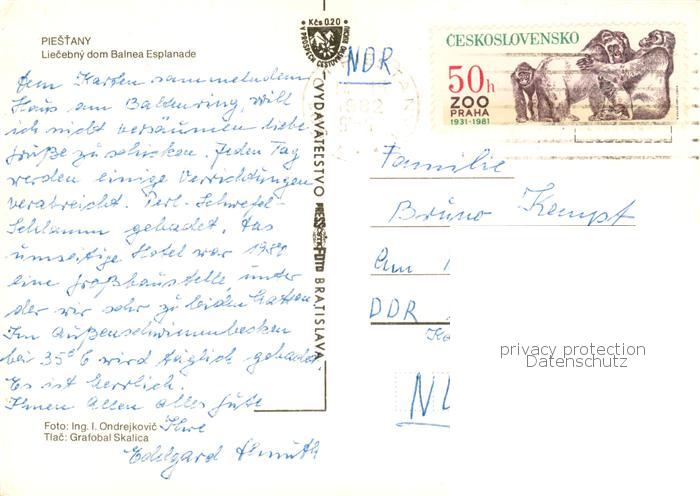 PIEŠŤANY
Liečebný dom Balnea Esplanade
Dem Karten sammelnden
Haus am Baltenring, will
ich nicht versäumen liebe
Grüße zu schicken. Jeden Tag
werden einige Verrichtungen
verabreicht. Perl-Schwefel-
Schlamm gebadet, das
umseitige Hotel war 1980
eine Großbaustelle, unter
der wir sehr zu leiden hatten
Im Außenschwimmbecken
bei 35° C wird täglich gebadet
Es ist herrlich.
Ihnen Allen alles Gute
Ihre
Edelgard
Foto: Ing. I. Ondrejkovič
Tlač: Grafobal Skalica
Kčs 0.20
VYDAVATEĽSTVO PRESSFOTO BRATISLAVA
NDR
1982
ČESKOSLOVENSKO
50h
ZOO
PRAHA
1931-1981
Familie
Bruno Kempf
Am
DDR
privacy protection
Datenschutz